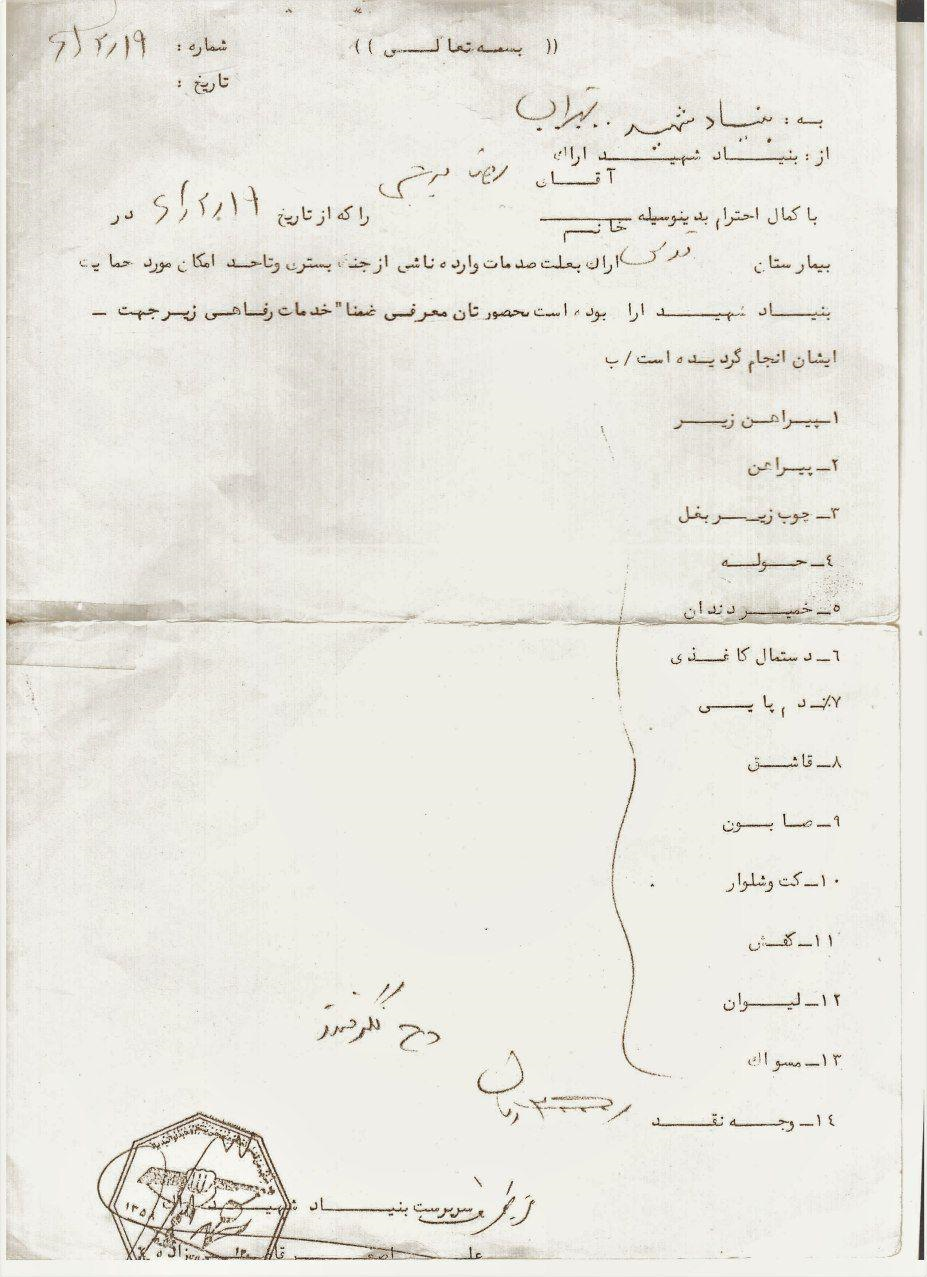 (( بسمه تعالی ))
شماره : ۶۱/۲/۱۹
تاریخ :
به : بنیاد شهید تهران
از : بنیاد شهید اراک
آقای
با کمال احترام بدینوسیله خانم را که از تاریخ ۶۱/۲/۱۹ در
بیمارستان اراک بعلت صدمات وارده ناشی از جنگ بستری وتاحد امکان مورد حمایت
بنیاد شهید ارا بوده است بحضورتان معرفی ضمنا" خدمات رفاهی زیر جهت ـ
ایشان انجام گردیده است / ب
۱ـ پیراهن زیر
۲ـ پیراهن
۳ـ چوب زیر بغل
۴ـ حوله
۵ـ خمیر دندان
۶ـ دستمال کاغذی
۷ـ دم پایی
۸ـ قاشق
۹ـ صابون
۱۰ـ کت وشلوار
۱۱ـ کفش
۱۲ـ لیوان
۱۳ـ مسواک
۱۴ـ وجه نقد ریال
سرپرست بنیاد شهید
۱۳۵۸